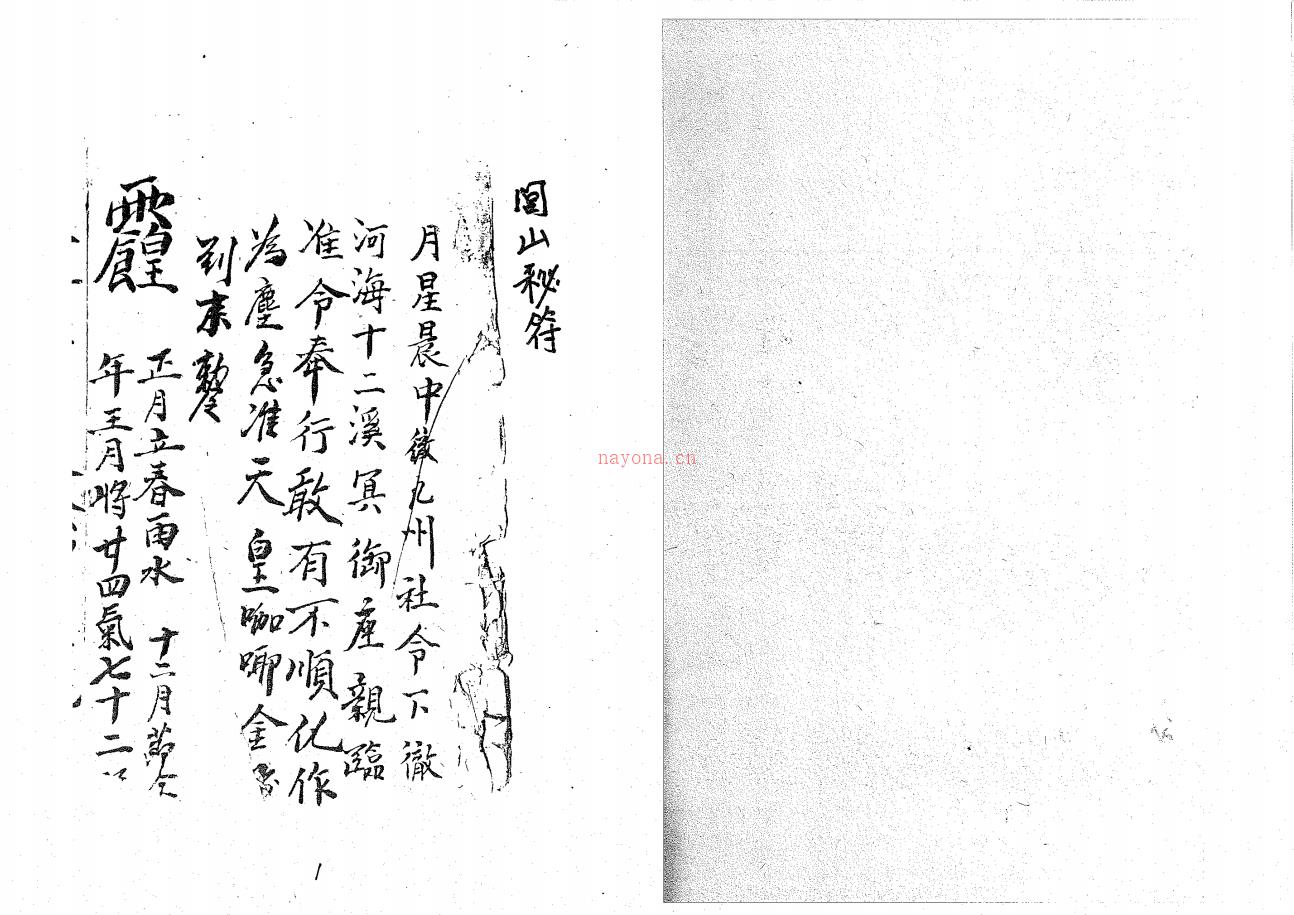 閭山秘符
月星晨中徹九州社令下徹
河海十二溪冥御座親臨
准令奉行敢有不順化作
為塵急准天皇上咖唧金
到奉
正月立春雨水 十二月節令
年王月將廿四氣七十二
1
nayona.cn